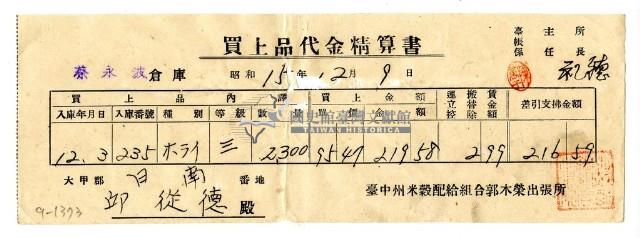 買上品代金精算書
臺帳係 主任 所長
蔡永波倉庫 昭和15年12月9日
買上品內譯 買上金額 運搬賃立替金控除額 差引支拂金額
入庫年月日 入庫番號 種別 等級 數量 單價 金額
12.3 235 ホライ 三 2,300 9547 21958 299 21659
國史館臺灣文獻館
TAIWAN HISTORICA
大甲郡 日南 番地
邱從德殿
臺中州米穀配給組合郭木榮出張所
9-1393